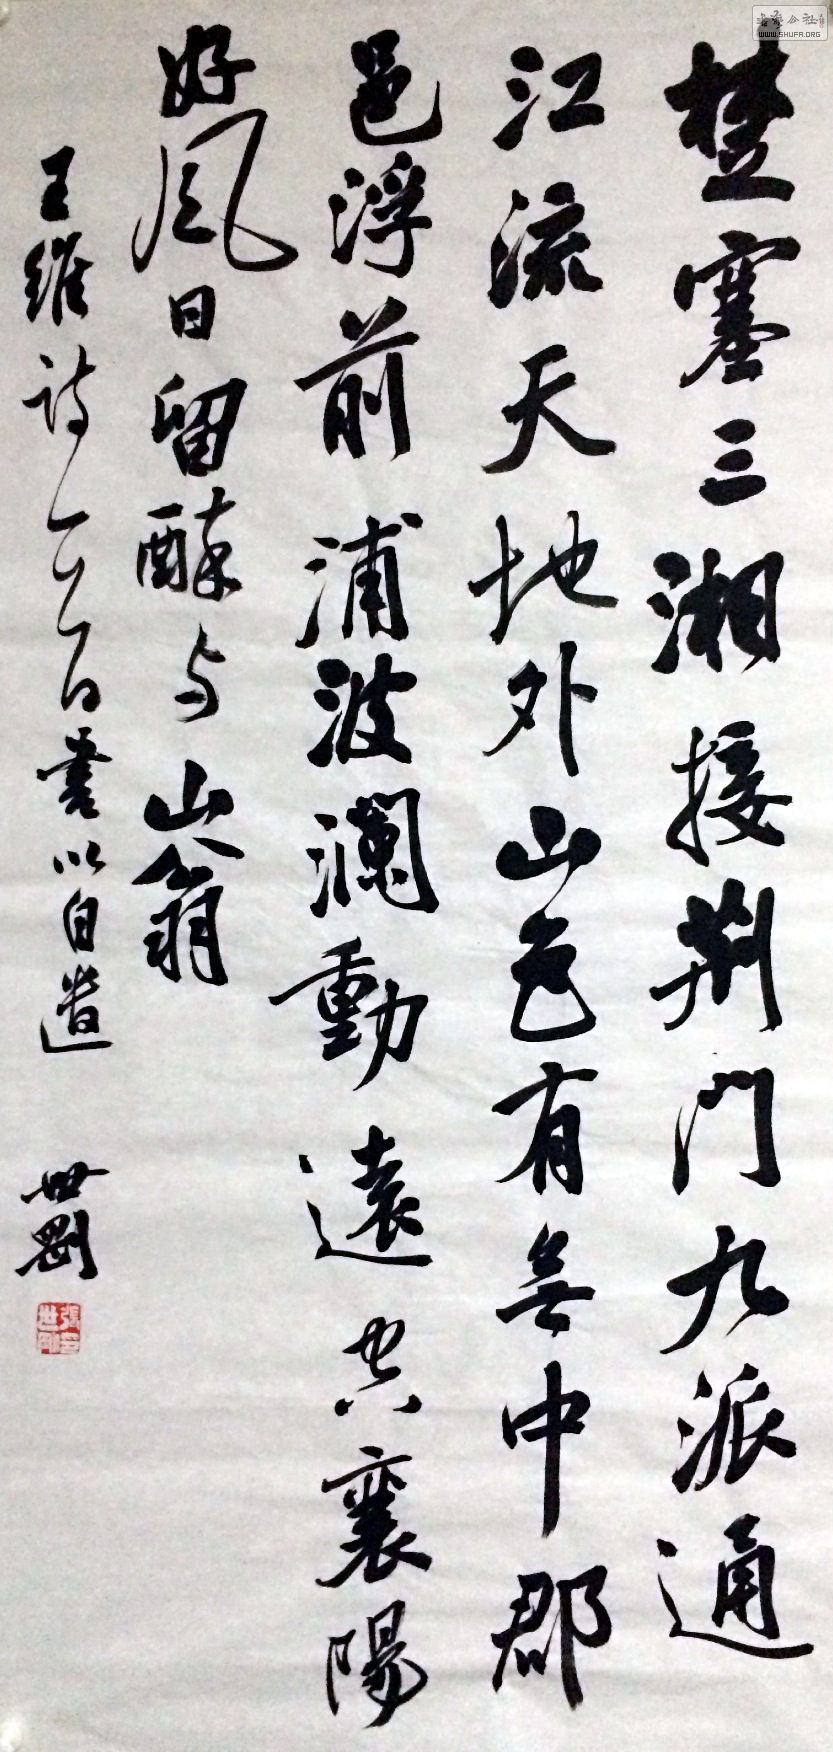 楚塞三湘接荆門九派通
江流天地外山色有無中郡
邑浮前浦波瀾動遠空襄陽
好風日留醉与山翁
王維詩一首書以自遣
世剛
張印世剛
书法公社
WWW.SHUFA.ORG